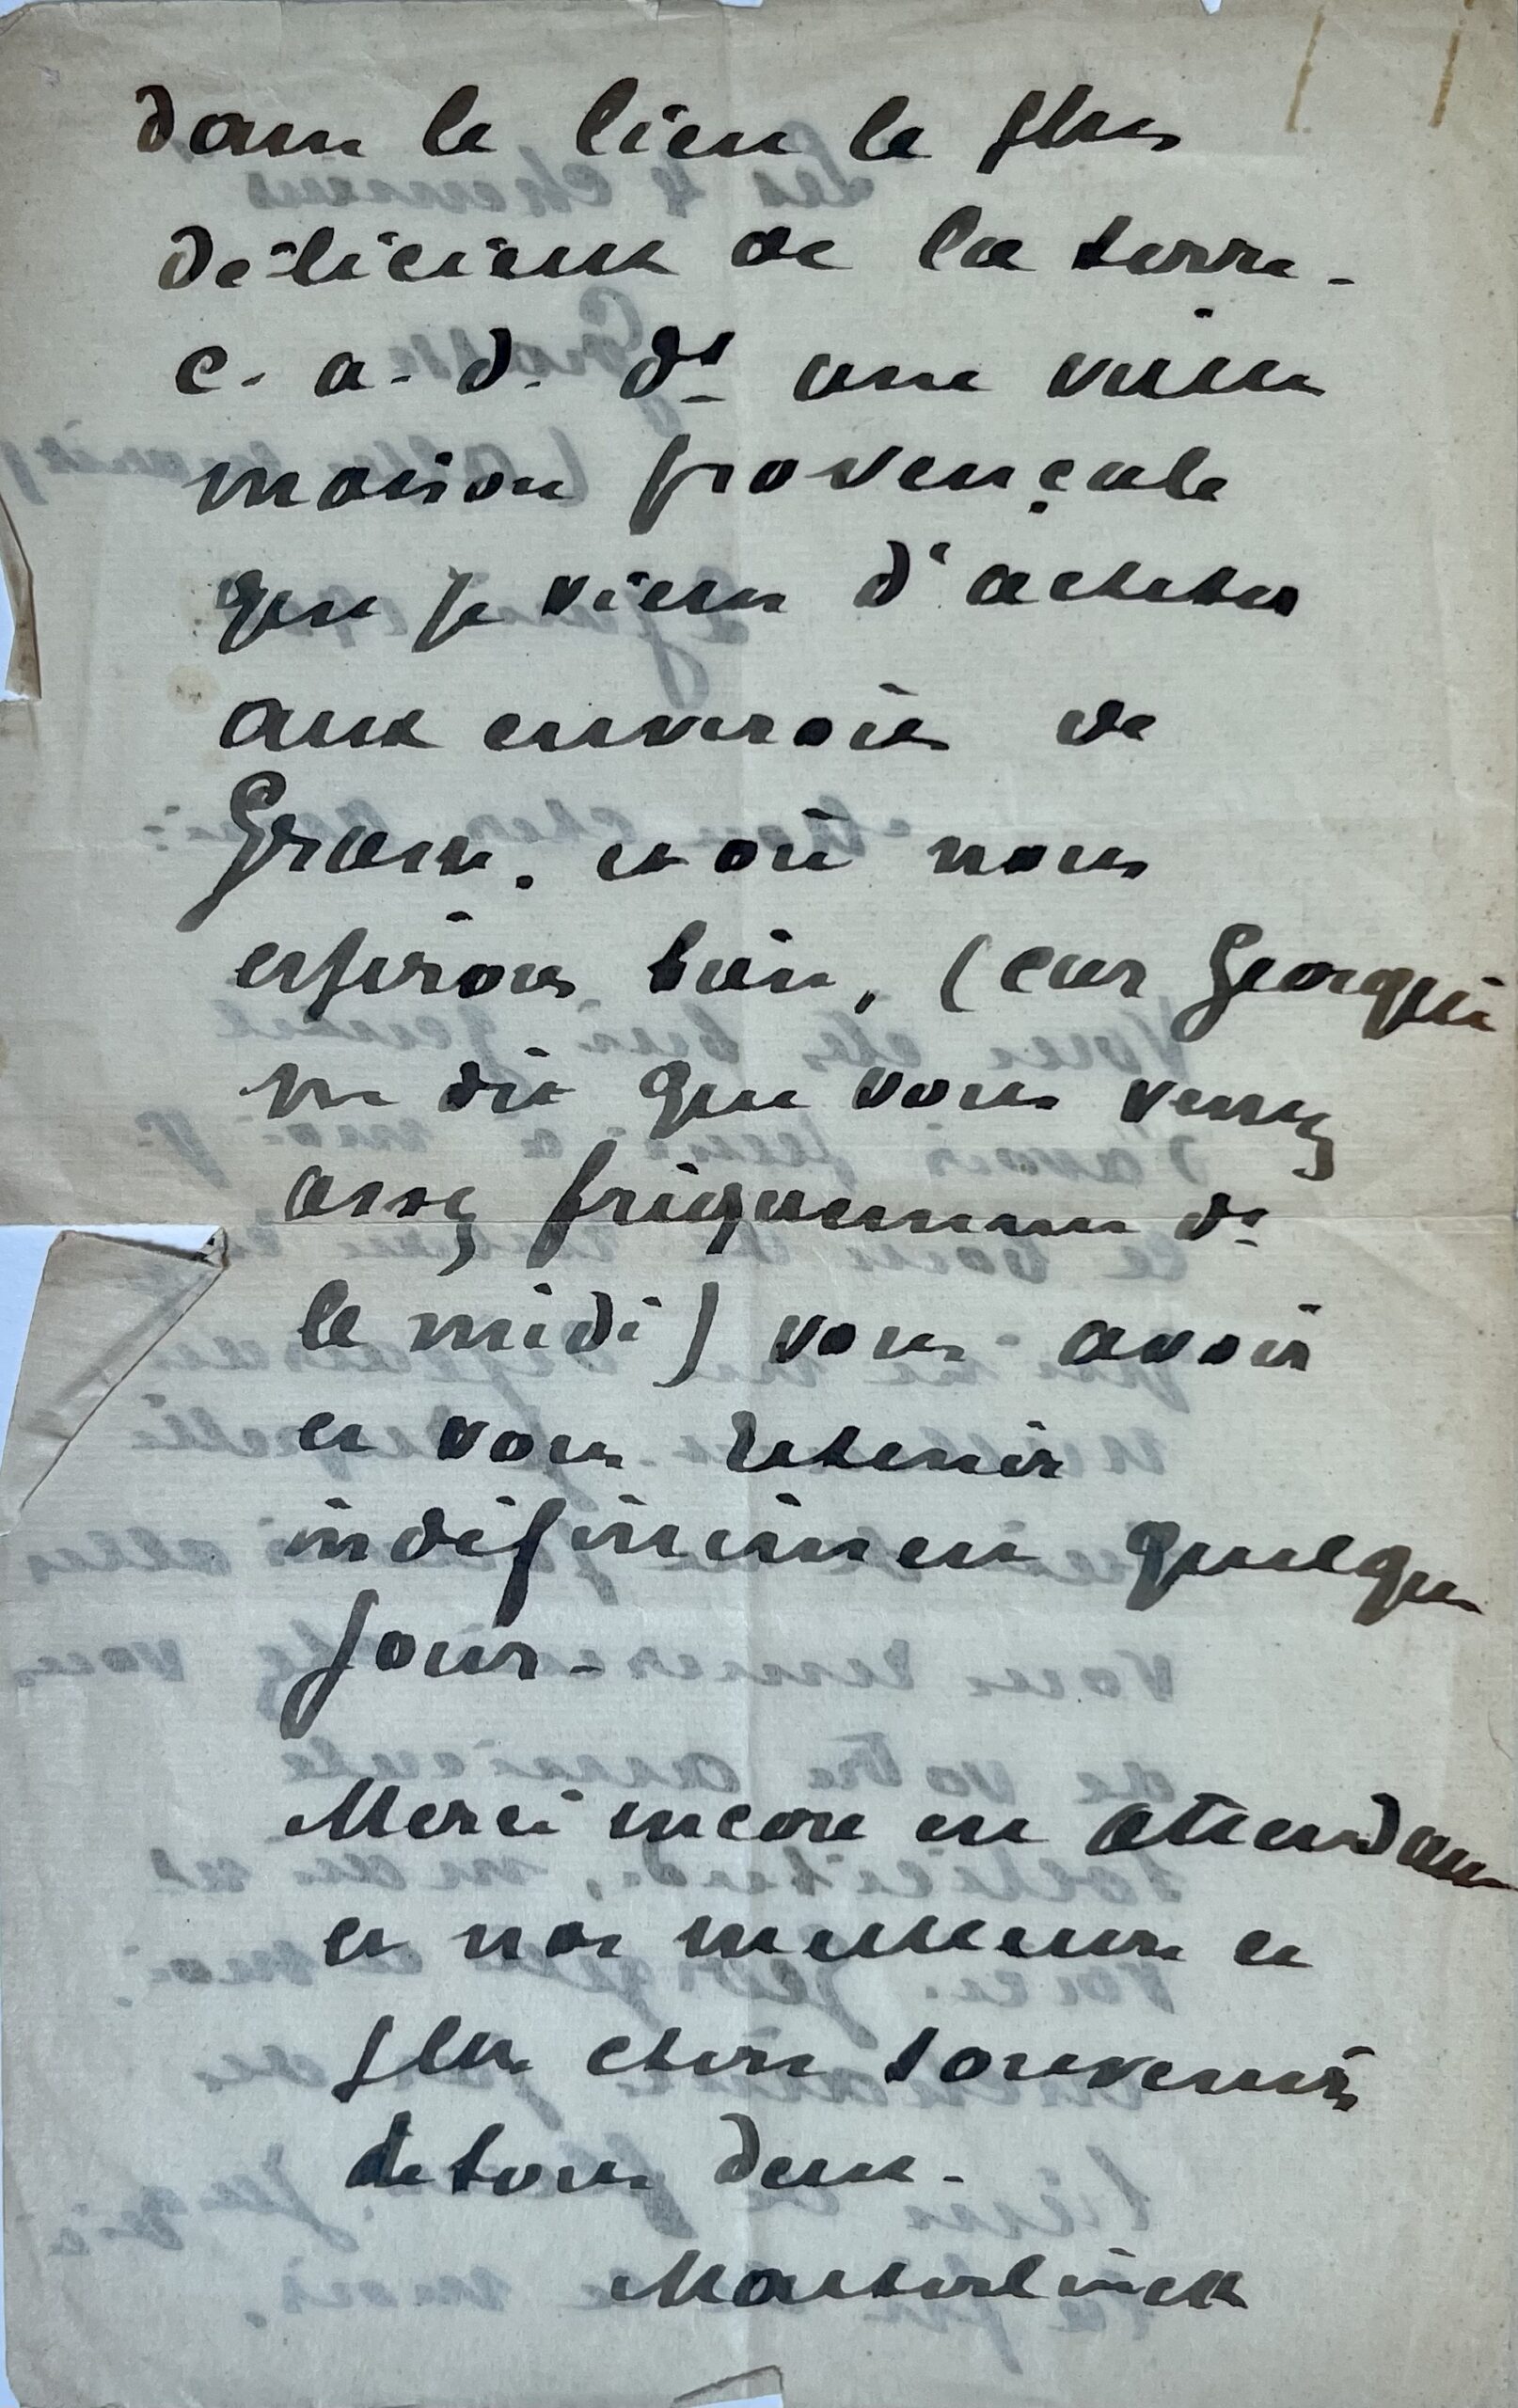 dans le lieu le plus
délicieux de la terre -
c. a. d. ds une vieille
maison provençale
que je viens d'acheter
aux environs de
Grasse. et où nous
espérons bien, (car Georgette
me dit que vous venez
assez fréquemment ds
le midi) vous avoir
et vous retenir
indéfiniment quelque
jour -
Merci encore en attendant
et nos meilleurs et
plus chers souvenirs
de tous deux -
Maeterlinck